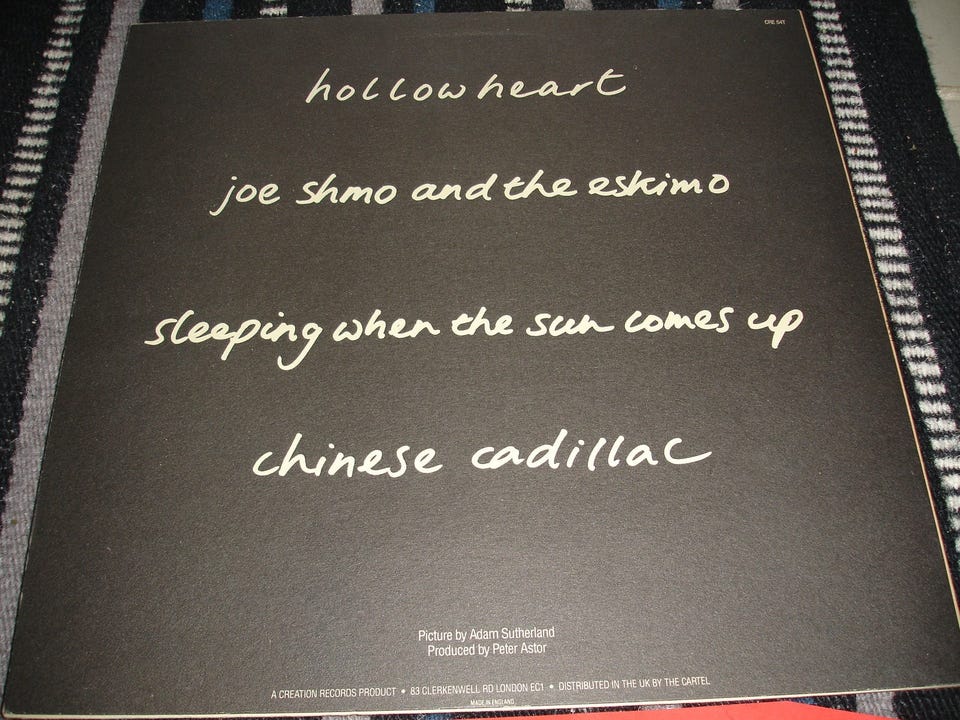 CRE 54T
hollow heart
joe shmo and the eskimo
sleeping when the sun comes up
chinese cadillac
Picture by Adam Sutherland
Produced by Peter Astor
A CREATION RECORDS PRODUCT • 83 CLERKENWELL RD LONDON EC1 • DISTRIBUTED IN THE UK BY THE CARTEL
MADE IN ENGLAND